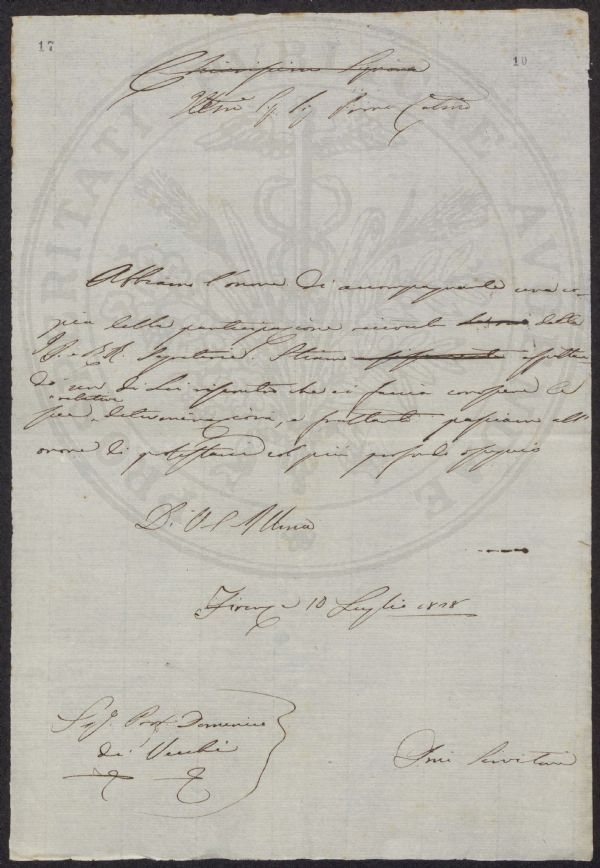 17
10
Chiarissimo Signore
Illmo Sig. Sig.
Abbiamo l'onore di accompagnarle una co-
pia della partecipazione ricevuta della
I. e R. Segreteria. Stiamo aspettan
do un di Lei riscontro che ci faccia conoscere le
relative
sue determinazioni, e frattanto passiamo all'
onore di protestarci col più profondo ossequio
Di V. S. Illma
Firenze 10 Luglio 1828
Sig. Prof. Domenico
de' Vecchi
Dmi Servitori